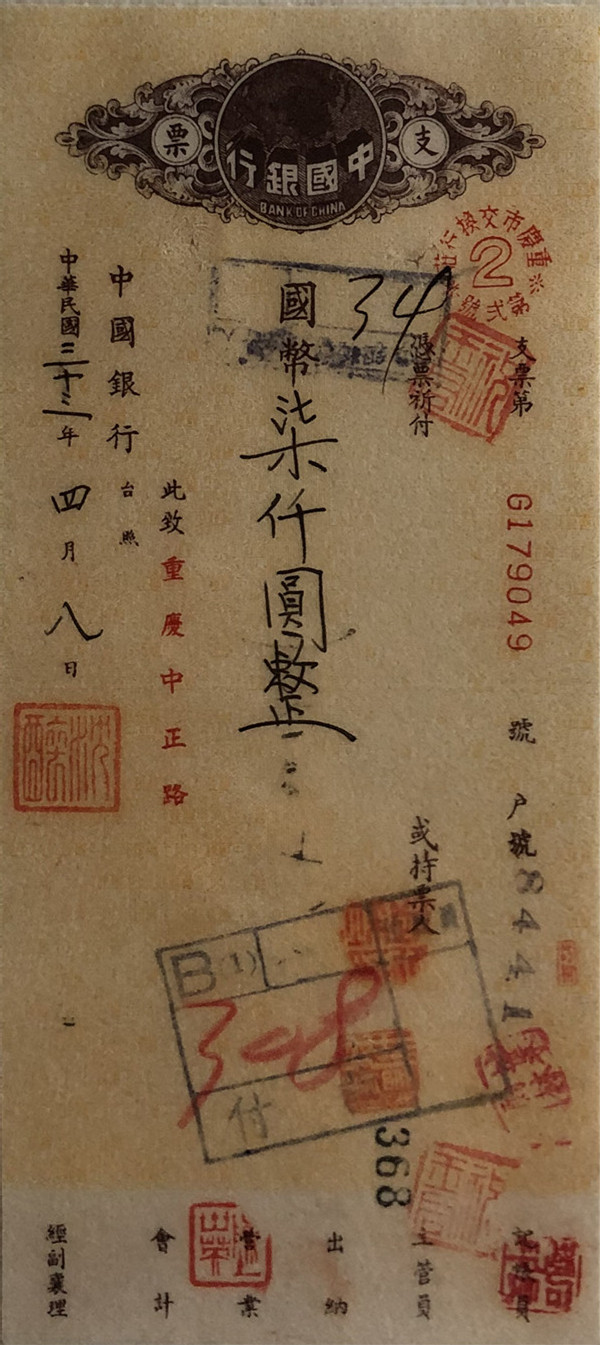 支票
中國銀行
BANK OF CHINA
重慶市交換行莊
2
第弍號
支票第 G179049 號 户號 8441
憑票祈付 或持票人
34
國幣柒仟圓整
此致重慶中正路
中國銀行 台照
中華民國三十三年四月八日
B(1)
348
付
368
記帳員
主管員
出納
營業
會計
經副襄理